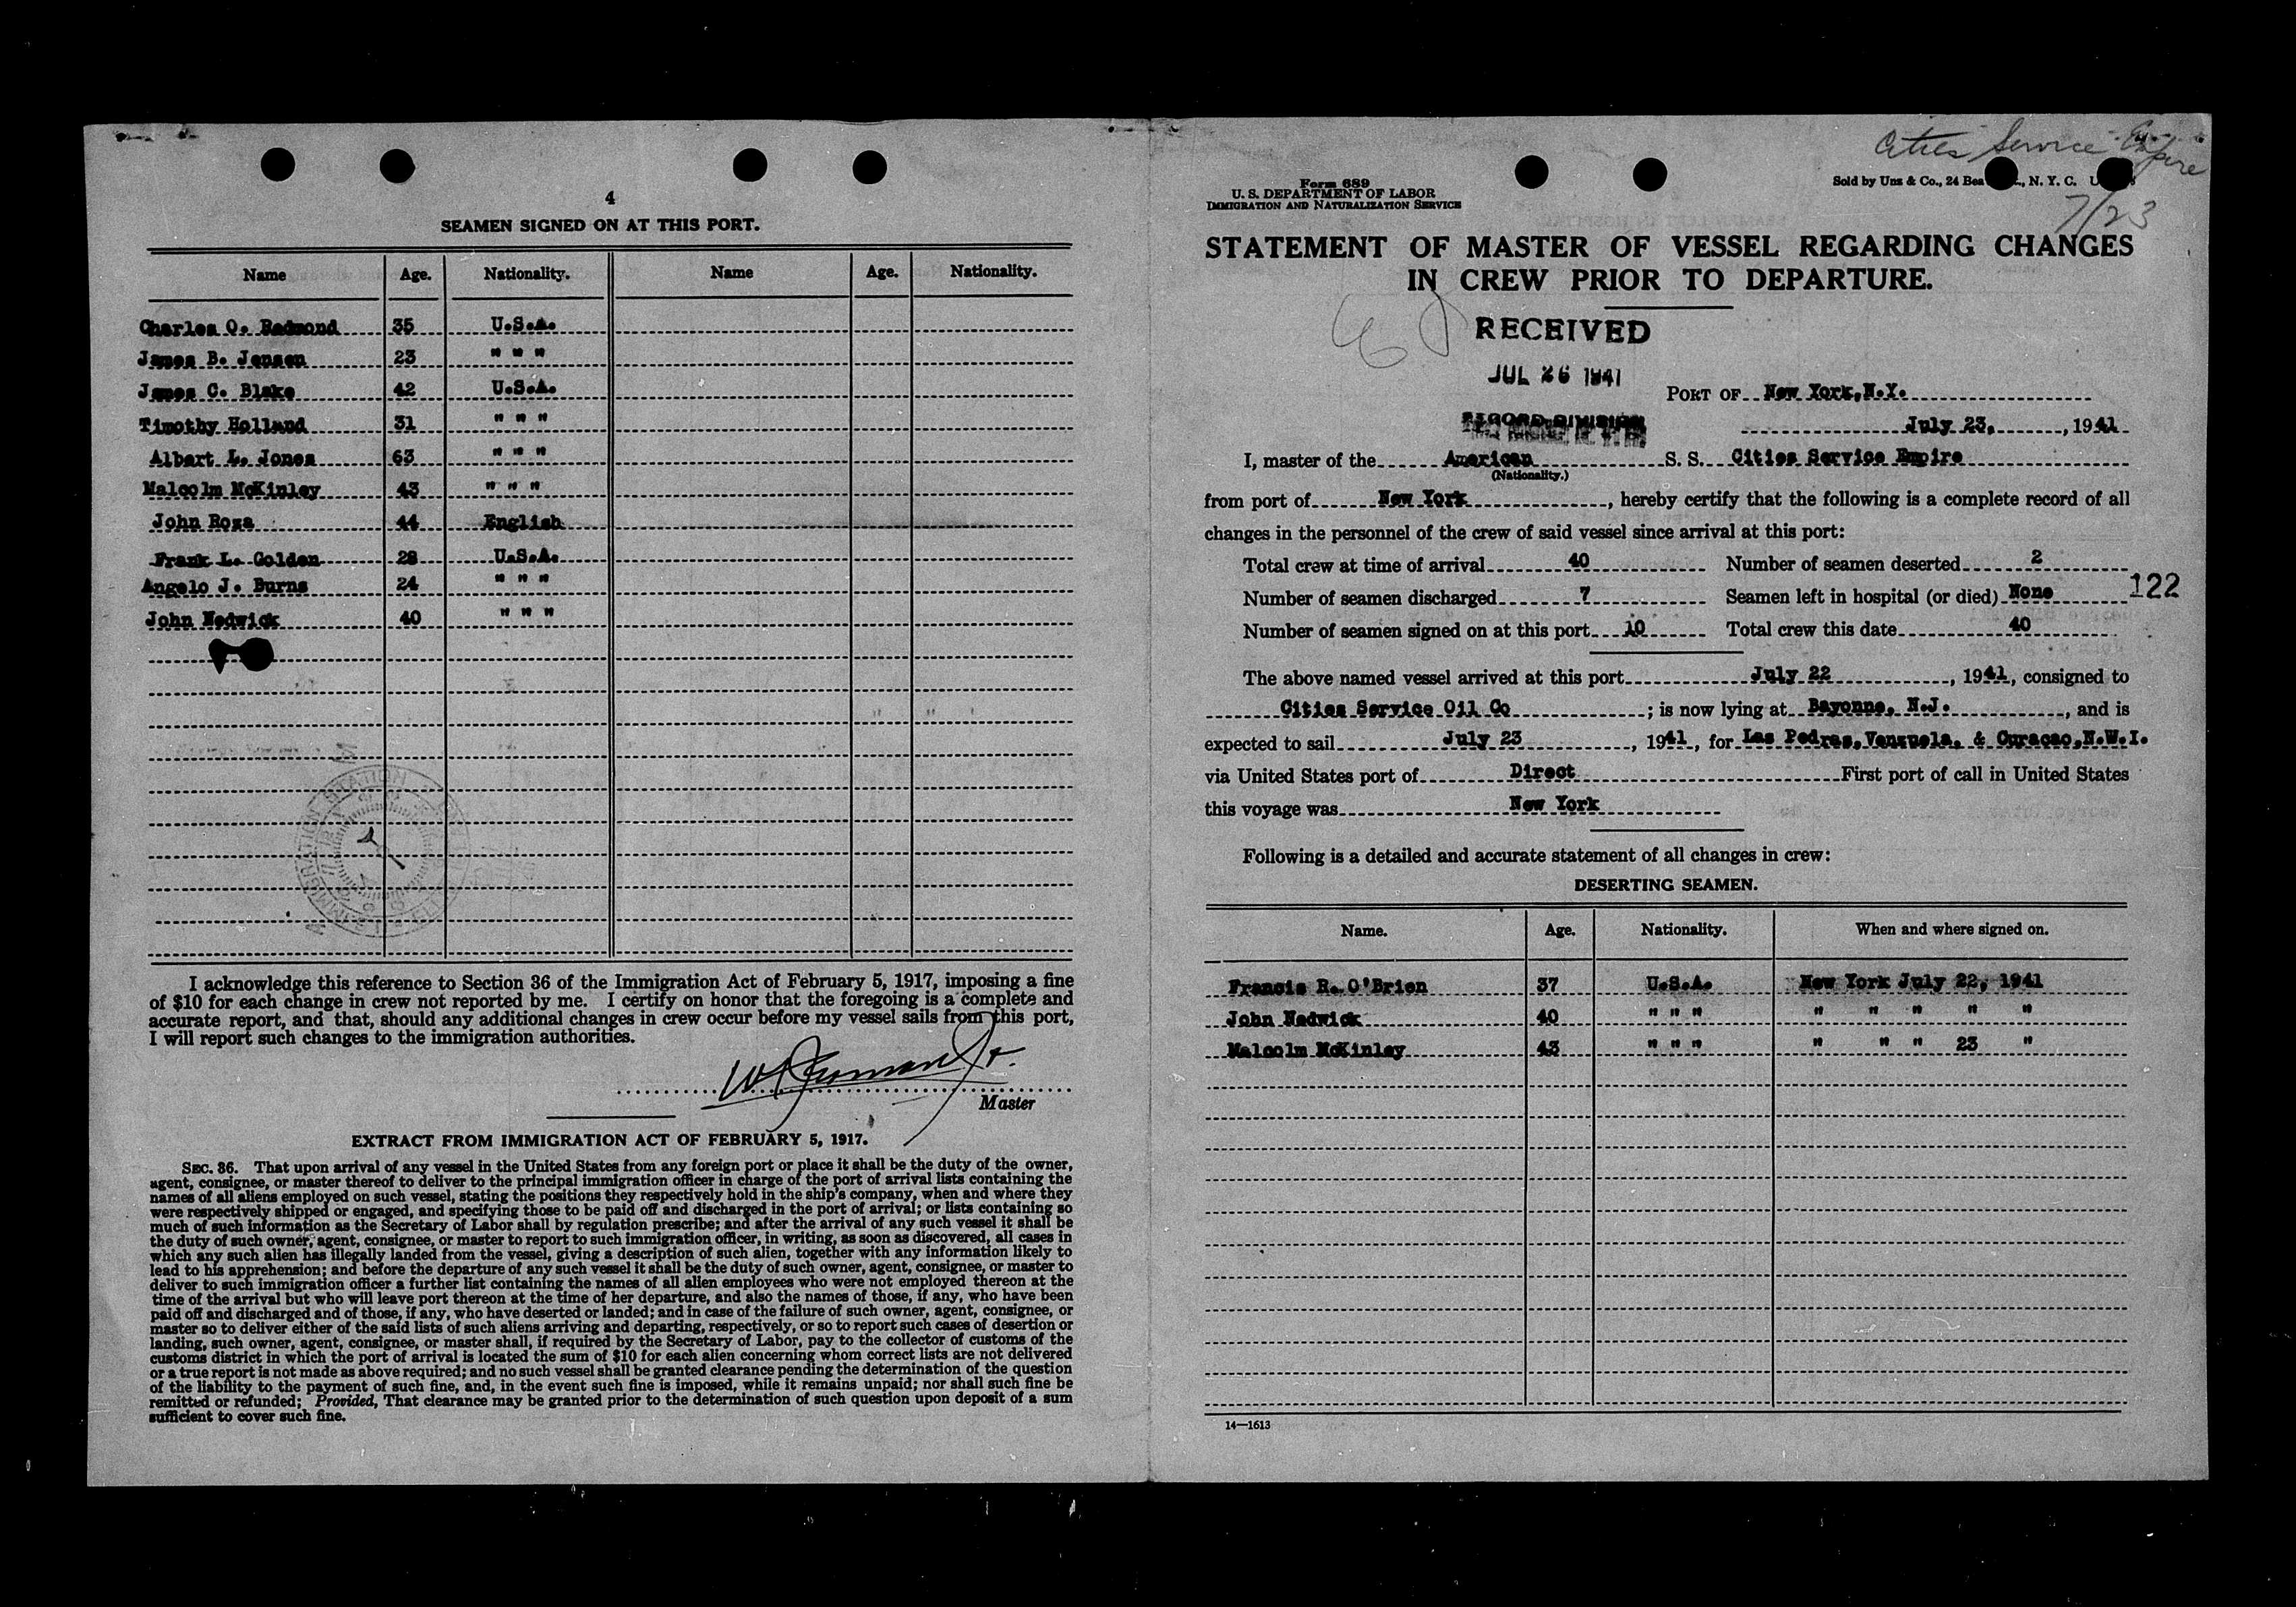 4
SEAMEN SIGNED ON AT THIS PORT.
Name Age. Nationality. Name Age. Nationality.
Charles O. Redmond 35 U.S.A.
James B. Jensen 23 " " "
James C. Blake 42 U.S.A.
Timothy Holland 31 " " "
Albert L. Jones 63 " " "
Malcolm McKinley 43 " " "
John Roza 44 English
Frank L. Golden 28 U.S.A.
Angelo J. Burns 24 " " "
John Nedwick 40 " " "
IMMIGRATION STATION
I acknowledge this reference to Section 36 of the Immigration Act of February 5, 1917, imposing a fine
of $10 for each change in crew not reported by me. I certify on honor that the foregoing is a complete and
accurate report, and that, should any additional changes in crew occur before my vessel sails from this port,
I will report such changes to the immigration authorities.
Master
EXTRACT FROM IMMIGRATION ACT OF FEBRUARY 5, 1917.
SEC. 36. That upon arrival of any vessel in the United States from any foreign port or place it shall be the duty of the owner,
agent, consignee, or master thereof to deliver to the principal immigration officer in charge of the port of arrival lists containing the
names of all aliens employed on such vessel, stating the positions they respectively hold in the ship's company, when and where they
were respectively shipped or engaged, and specifying those to be paid off and discharged in the port of arrival; or lists containing so
much of such information as the Secretary of Labor shall by regulation prescribe; and after the arrival of any such vessel it shall be
the duty of such owner, agent, consignee, or master to report to such immigration officer, in writing, as soon as discovered, all cases in
which any such alien has illegally landed from the vessel, giving a description of such alien, together with any information likely to
lead to his apprehension; and before the departure of any such vessel it shall be the duty of such owner, agent, consignee, or master to
deliver to such immigration officer a further list containing the names of all alien employees who were not employed thereon at the
time of the arrival but who will leave port thereon at the time of her departure, and also the names of those, if any, who have been
paid off and discharged and of those, if any, who have deserted or landed; and in case of the failure of such owner, agent, consignee, or
master so to deliver either of the said lists of such aliens arriving and departing, respectively, or so to report such cases of desertion or
landing, such owner, agent, consignee, or master shall, if required by the Secretary of Labor, pay to the collector of customs of the
customs district in which the port of arrival is located the sum of $10 for each alien concerning whom correct lists are not delivered
or a true report is not made as above required; and no such vessel shall be granted clearance pending the determination of the question
of the liability to the payment of such fine, and, in the event such fine is imposed, while it remains unpaid; nor shall such fine be
remitted or refunded; Provided, That clearance may be granted prior to the determination of such question upon deposit of a sum
sufficient to cover such fine.
Cities Service Empire
7/23
Form 689
U. S. DEPARTMENT OF LABOR
IMMIGRATION AND NATURALIZATION SERVICE
Sold by Unz & Co., 24 Bea , N. Y. C.
STATEMENT OF MASTER OF VESSEL REGARDING CHANGES
IN CREW PRIOR TO DEPARTURE.
RECEIVED
JUL 26 1941
RECORD DIVISION
PORT OF New York, N.Y.
July 23, , 1941
I, master of the American S. S. Cities Service Empire
(Nationality.)
from port of New York , hereby certify that the following is a complete record of all
changes in the personnel of the crew of said vessel since arrival at this port:
Total crew at time of arrival 40 Number of seamen deserted 2
Number of seamen discharged 7 Seamen left in hospital (or died) None 122
Number of seamen signed on at this port 10 Total crew this date 40
The above named vessel arrived at this port July 22 , 1941, consigned to
Cities Service Oil Co ; is now lying at Bayonne, N.J. , and is
expected to sail July 23 , 1941, for Las Pedras, Venzuela, & Curacao, N.W.I.
via United States port of Direct First port of call in United States
this voyage was New York
Following is a detailed and accurate statement of all changes in crew:
DESERTING SEAMEN.
Name. Age. Nationality. When and where signed on.
Francis R. O'Brien 37 U.S.A. New York July 22, 1941
John Nedwick 40 " " " " " " " "
Malcolm McKinley 43 " " " " " " 23 "
14—1613